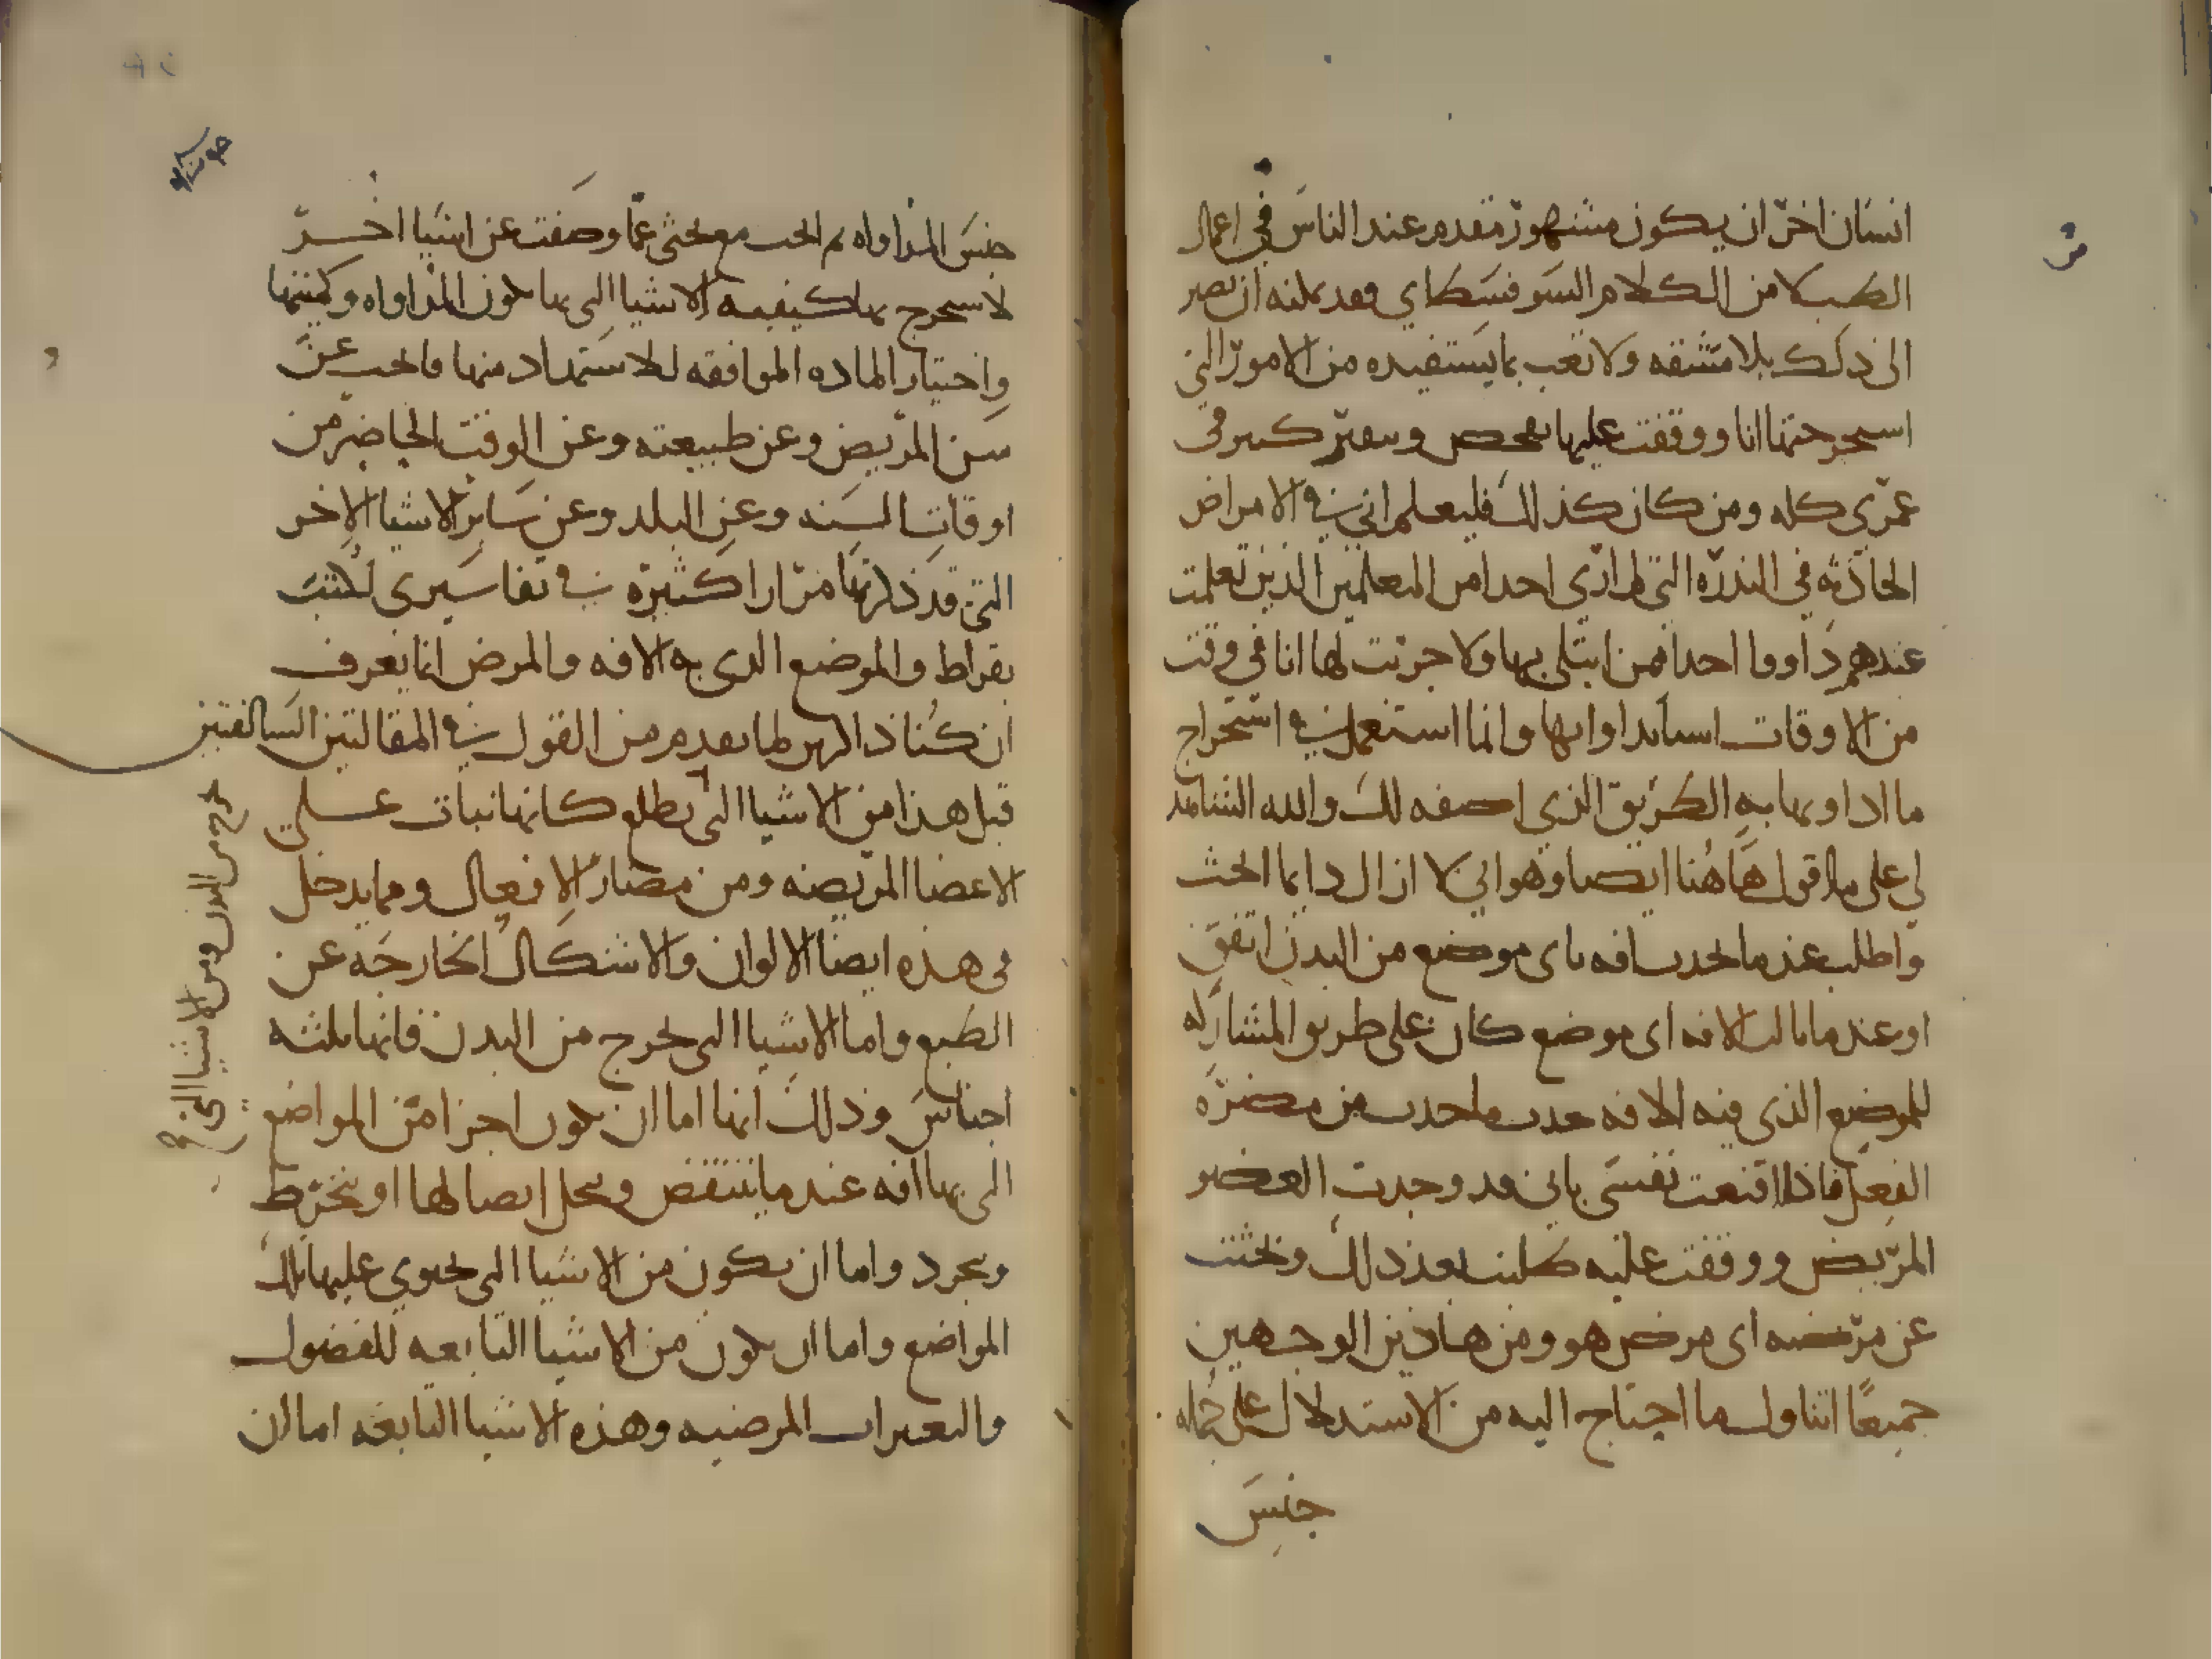 انسان اخر ان يكون مشهور مقدم عند الناس في اعمال
الطب لا من الكلام السوفسطاي فقد يمكنه ان يصير
الى ذلك بلا مشقه ولا تعب بما يستفيده من الامور التي
استخرجتها انا ووقفت عليها بفحص وتفتير كثير في
عمري كله ومن كان كذلك فليعلم اني في الامراض
الحادثه في الندره التي لم ار احدا من المعلمين الذين تعلمت
عندهم داووا احدا ممن ابتلى بها ولا جربت لها انا في وقت
من الاوقات اسيا يداوا بها وانما استعمل في استخراج
ما اداويها به الطريق الذي اصفه لك والله الشاهد
لي على ما اقول هاهنا ايضا وهو اني لا ازال دايما ابحث
واطلب عندما تحدث افه باى موضع من البدن اتفق
او عندما نالت الافه اى موضع كان على طريق المشاركه
للموضع الذى فيه الافه حدث ما حدث من مضره
الفعل فاذا اقنعت نفسى بانى قد وجدت العضو
المريض ووقفت عليه طلبت بعد ذلك وبحثت
عن مرضه اى مرض هو ومن هاذين الوجهين
جميعا اتناول ما احتاج اليه من الاستدلال على جمله
جنس
جنس المداواه ثم ابحث مع بحثى عما وصفت عن اشيا اخر
لاستخرج بها كيفيه الاشيا التى بها تكون المداواه وكميتها
واختيار الماده الموافقه للاستمداد منها فابحث عن
سن المريض وعن طبيعته وعن الوقت الحاضر من
اوقات السنه وعن البلد وعن ساير الاشيا الاخر
التي قد ذكرتها مرارا كثيره في تفاسيرى لكتب
بقراط والموضع الذى به الافه والمرض انما يعرف
ان كنا ذاكرين لما تقدم من القول في المقالتين السالفتين
قبل هذا من الاشيا التى تطلع كانها نبات على
الاعضا المريضه ومن مضار الافعال ومما يدخل
في هذه ايضا الالوان والاشكال الخارجه عن
الطبع واما الاشيا التى تخرج من البدن فانها ثلثه
اجناس وذلك انها اما ان تكون اجزا من المواضع
التى بها افه عندما ينتقض وينحل اتصالها او ينخرط
وينجرد واما ان يكون من الاشيا التى تحتوي عليها تلك
المواضع واما ان تكون من الاشيا التابعه للفضول
والتغيرات المرضيه وهذه الاشيا التابعه اما ان
من البدن ومن الاشيا التى